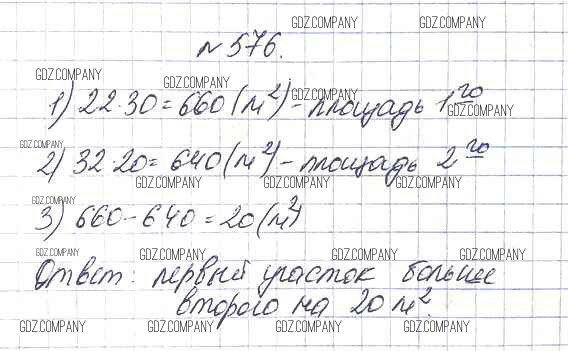 GDZ.COMPANY GDZ.COMPANY
№ 576.
GDZ.COMPANY GDZ.COMPANY GDZ.COMPANY
1) 22·30=660(м²)-площадь 1го
GDZ.COMPANY
GDZ.COMPANY GDZ.COMPANY GDZ.COMPANY
2) 32·20=640(м²)-площадь 2го
GDZ.COMPANY GDZ.COMPANY GDZ.COMPANY
GDZ.COMPANY
3) 660-640=20(м²)
GDZ.COMPANY GDZ.COMPANY GDZ.COMPANY GDZ.COMPANY
Ответ: первый участок больше
второго на 20 м².
GDZ.COMPANY GDZ.COMPANY GDZ.COMPANY GDZ.COMPANY